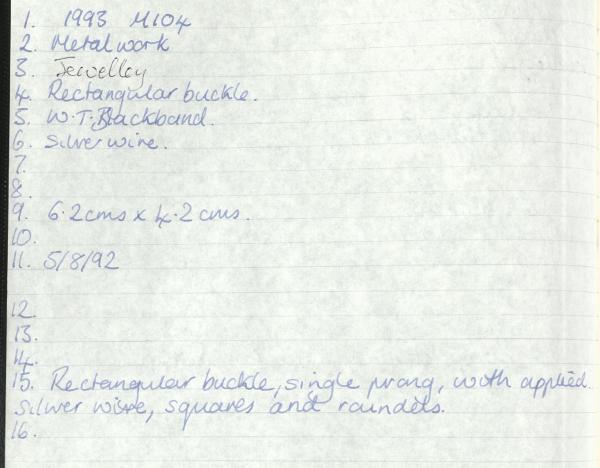 1. 1993 M104
2. Metalwork
3. Jewellery
4. Rectangular buckle.
5. W.T. Blackband.
6. Silver wire.
7.
8.
9. 6.2cms x 4.2 cms.
10.
11. 5/8/92
12.
13.
14.
15. Rectangular buckle, single prong, with applied
silver wire, squares and roundels.
16.